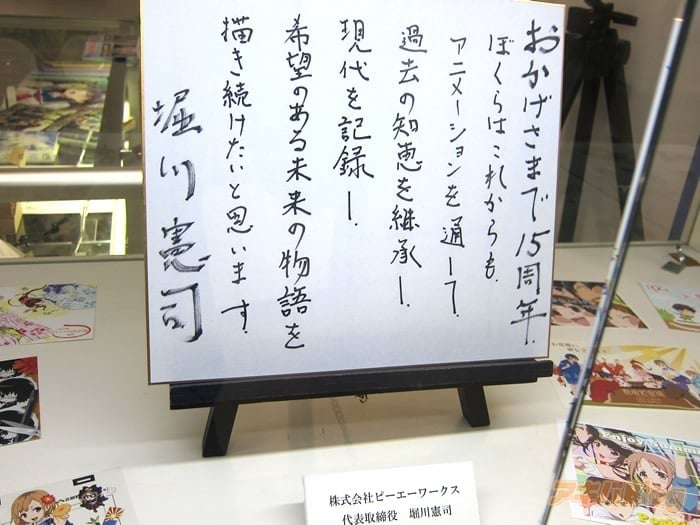 おかげさまで15周年.
ぼくらはこれからも.
アニメーションを通して.
過去の知恵を継承し.
現代を記録し.
希望のある未来の物語を
描き続けたいと思います.
堀川憲司
株式会社ピーエーワークス
代表取締役 堀川憲司
Enjoy